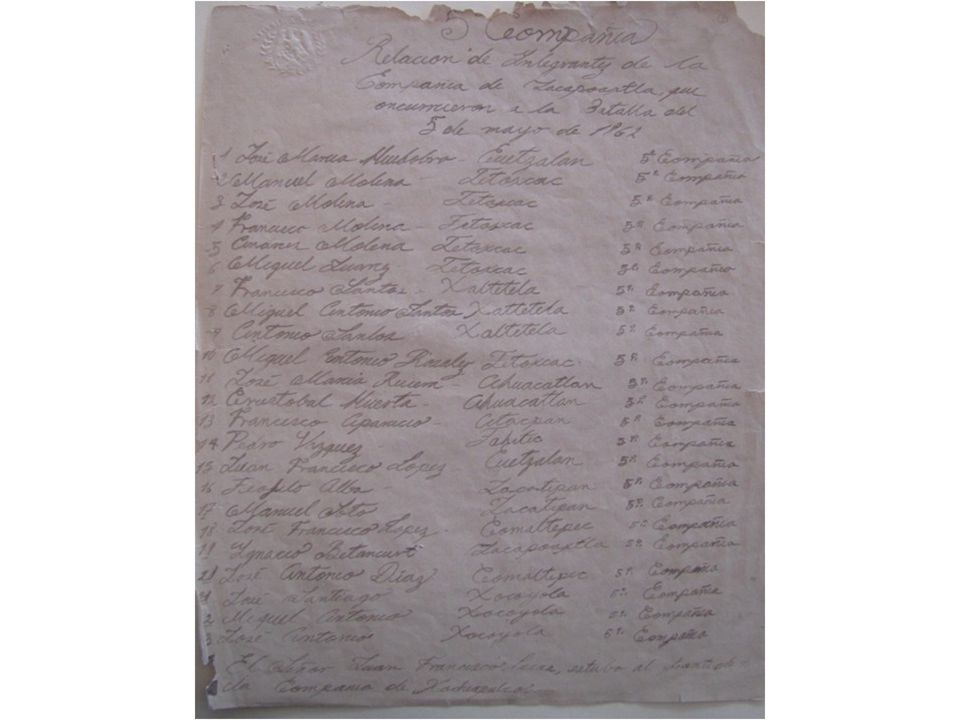 5 Compañia
Relacion de Integrantes de la
Compania de Zacapoaxtla que
oncurrieron a la Batalla del
5 de mayo de 1862
1 José Maria Cuetzalan 5ª Compañia
2 Manuel Molina - Tetoxcac 5ª Compañia
3 José Molina - Tetoxcac 5ª Compañia
4 Francisco Molina - Tetoxcac 5ª Compañia
5 Molina Tetoxcac 5ª Compañia
6 Miguel Juarez - Tetoxcac 5ª Compañia
7 Francisco Santos - Xaltetela 5ª Compañia
8 Miguel Antonio Santos Xaltetela 5ª Compañia
9 Antonio Santos Xaltetela 5ª Compañia
10 Miguel Antonio Tetoxcac 5ª Compañia
11 José Maria - Ahuacatlan 5ª Compañia
12 Cristobal Huerta - Ahuacatlan 5ª Compañia
13 Francisco Aparicio - 5ª Compañia
14 Pedro - 5ª Compañia
15 Juan Francisco Lopez - Cuetzalan 5ª Compañia
16 Teofilo Alba - Zacatipan 5ª Compañia
17 Manuel Soto Zacatipan 5ª Compañia
18 José Francisco Lopez - Comaltepec 5ª Compañia
19 Ignacio Betancurt Zacapoaxtla 5ª Compañia
José Antonio Diaz Comaltepec 5ª Compañia
José Santiago Xocoyola 5ª Compañia
2 Miguel Antonio Xocoyola 5ª Compañia
3 José Antonio Xocoyola 5ª Compañia
El Señor Juan Francisco Lucas, estubo al
da Compania de